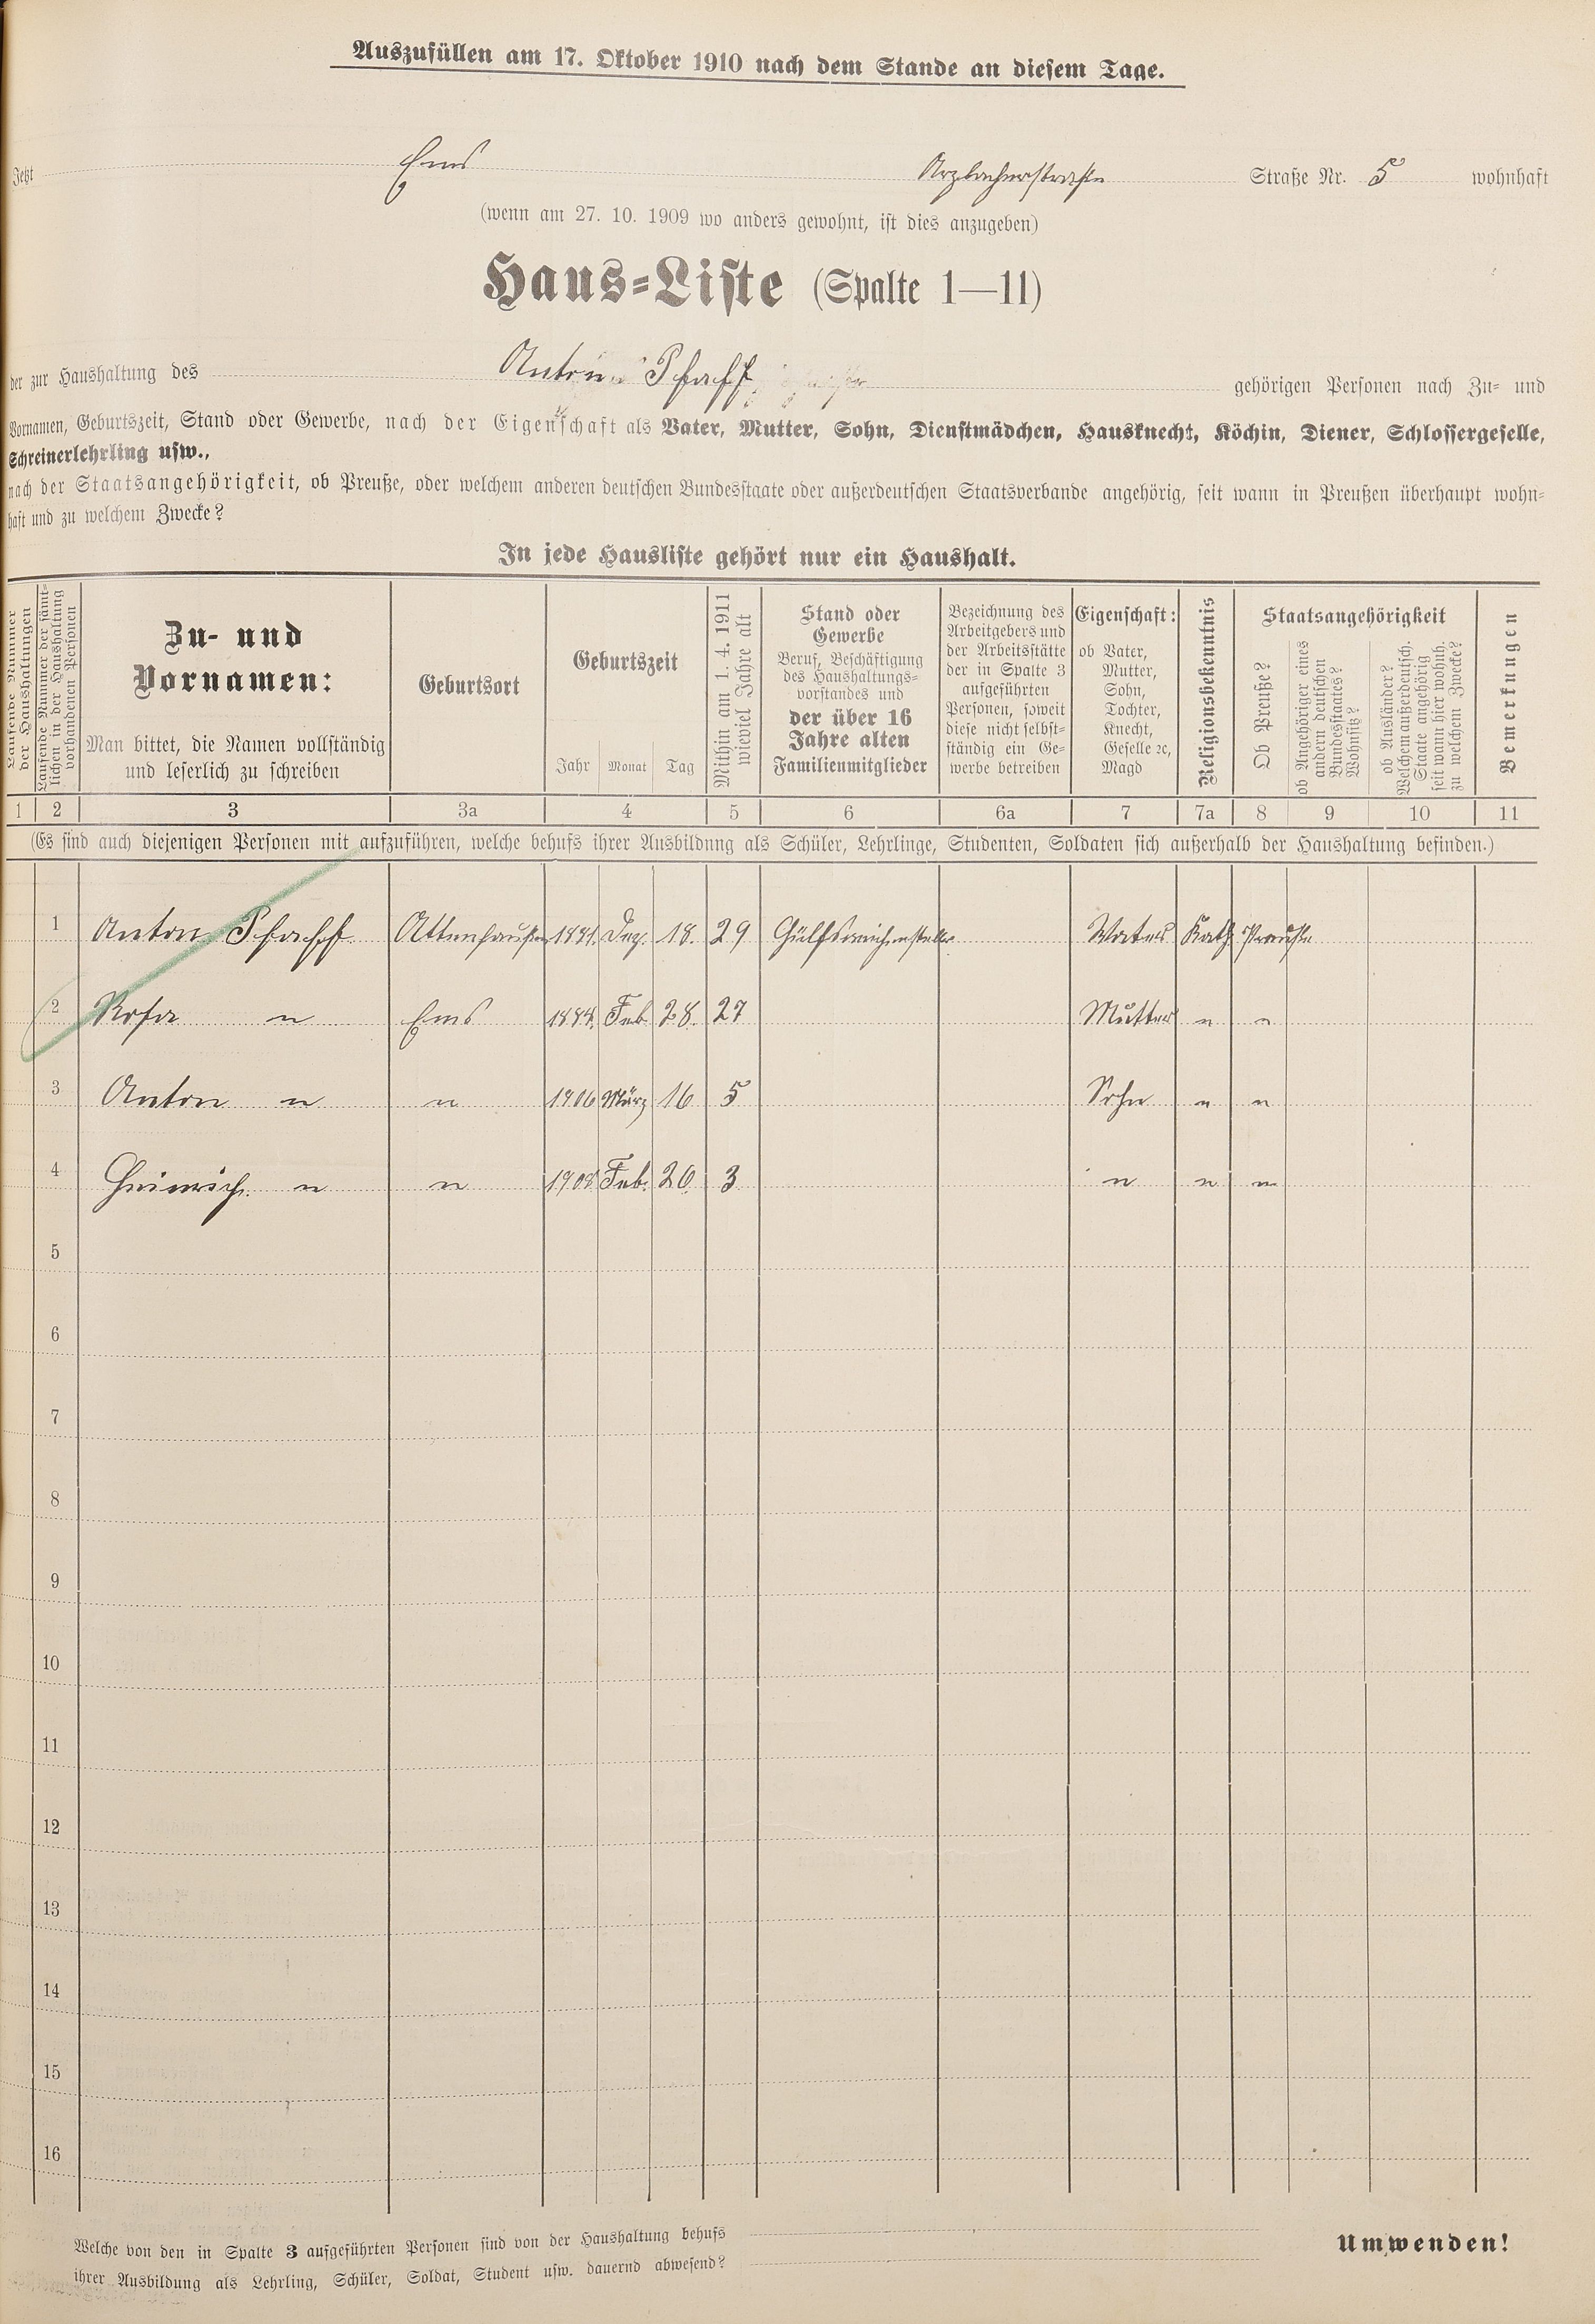 Auszufüllen am 17. Oktober 1910 nach dem Stande an diesem Tage.
Jetzt Ems Arzbacherstraße Straße Nr. 5 wohnhaft
(wenn am 27. 10. 1909 wo anders gewohnt, ist dies anzugeben)
Haus-Liste (Spalte 1—11)
der zur Haushaltung des Anton Pfaff gehörigen Personen nach Zu- und
Vornamen, Geburtszeit, Stand oder Gewerbe, nach der Eigenschaft als Vater, Mutter, Sohn, Dienstmädchen, Hausknecht, Köchin, Diener, Schlossergeselle,
Schreinerlehrling usw.,
nach der Staatsangehörigkeit, ob Preuße, oder welchem anderen deutschen Bundesstaate oder außerdeutschen Staatsverbande angehörig, seit wann in Preußen überhaupt wohn-
haft und zu welchem Zwecke?
In jede Hausliste gehört nur ein Haushalt.
Laufende Nummer
der Haushaltungen
Laufende Nummer der sämt-
lichen in der Haushaltung
vorhandenen Personen
Zu- und
Vornamen:
Man bittet, die Namen vollständig
und leserlich zu schreiben
Geburtsort
Geburtszeit
Jahr Monat Tag
Mithin am 1. 4. 1911
wieviel Jahre alt
Stand oder
Gewerbe
Beruf, Beschäftigung
des Haushaltungs-
vorstandes und
der über 16
Jahre alten
Familienmitglieder
Bezeichnung des
Arbeitgebers und
der Arbeitsstätte
der in Spalte 3
aufgeführten
Personen, soweit
diese nicht selbst-
ständig ein Ge-
werbe betreiben
Eigenschaft:
ob Vater,
Mutter,
Sohn,
Tochter,
Knecht,
Geselle ec,
Magd
Religionsbekenntnis
Staatsangehörigkeit
Ob Preuße?
ob Angehöriger eines
andern deutschen
Bundesstaates?
Wohnsitz?
ob Ausländer?
Welchem außerdeutsch.
Staate angehörig
seit wann hier wohnh.
zu welchem Zwecke?
Bemerkungen
1 2 3 3a 4 5 6 6a 7 7a 8 9 10 11
(Es sind auch diejenigen Personen mit aufzuführen, welche behufs ihrer Ausbildung als Schüler, Lehrlinge, Studenten, Soldaten sich außerhalb der Haushaltung befinden.)
1 Anton Pfaff Attenhausen 1881. Dez. 18. 29 Hülfsweichensteller. Vater Kath Preuße
2 Rosa " Ems 1884. Feb. 28. 27 Mutter " "
3 Anton " " 1906 März 16 5 Sohn " "
4 Heinrich " " 1908. Feb. 20. 3 " " "
5
6
7
8
9
10
11
12
13
14
15
16
Welche von den in Spalte 3 aufgeführten Personen sind von der Haushaltung behufs
ihrer Ausbildung als Lehrling, Schüler, Soldat, Student usw. dauernd abwesend?
Umwenden!